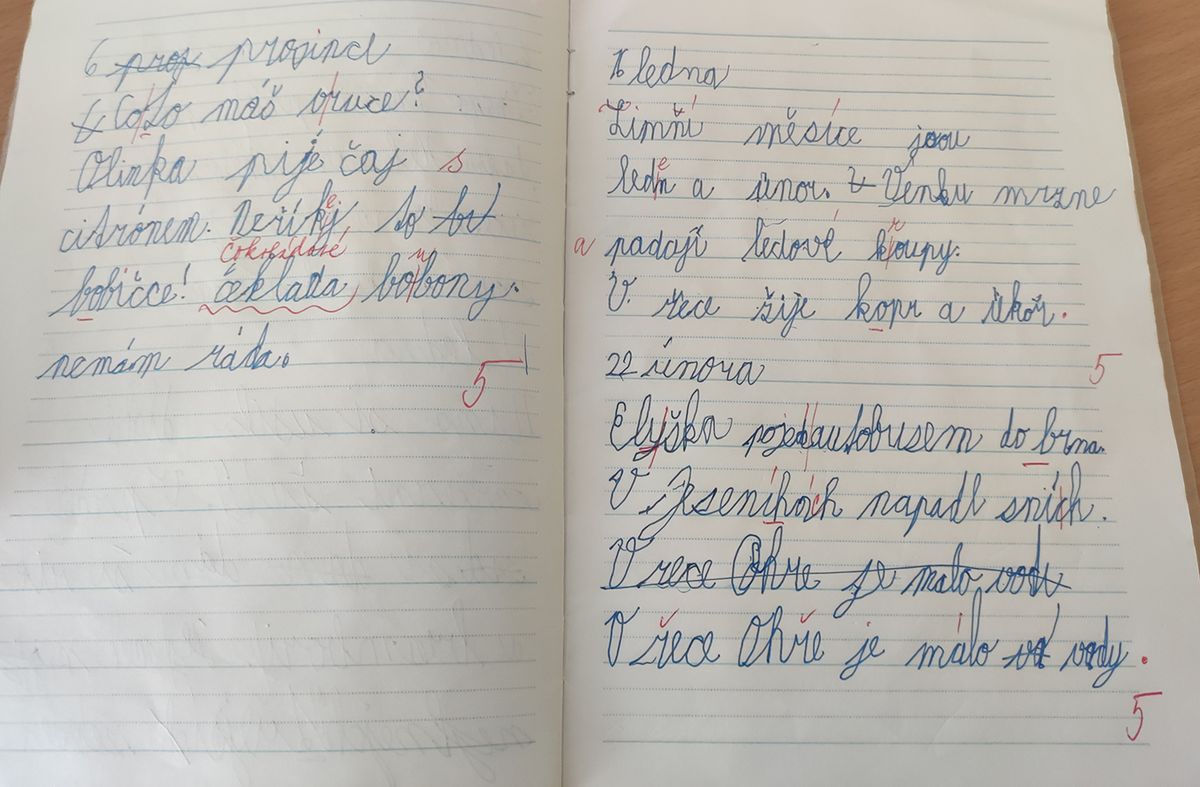 6 proz prosince
Coto máš vruce?
Olinka pije čaj s
citrónem. Neříkej to
čokoládové
bobičce! čeklada bonbony.
nemám ráda.
5
16 ledna
Zimní měsíce jsou
leden a únor. Venku mrzne
a padají ledové kroupy.
V řece žije kopr a úhoř.
22 února 5
Elyška pojedeautobusem do brna.
V Jeseníhóích napadl sních.
V rece Ohře je malo vody
V řece Ohře je málo vody.
5